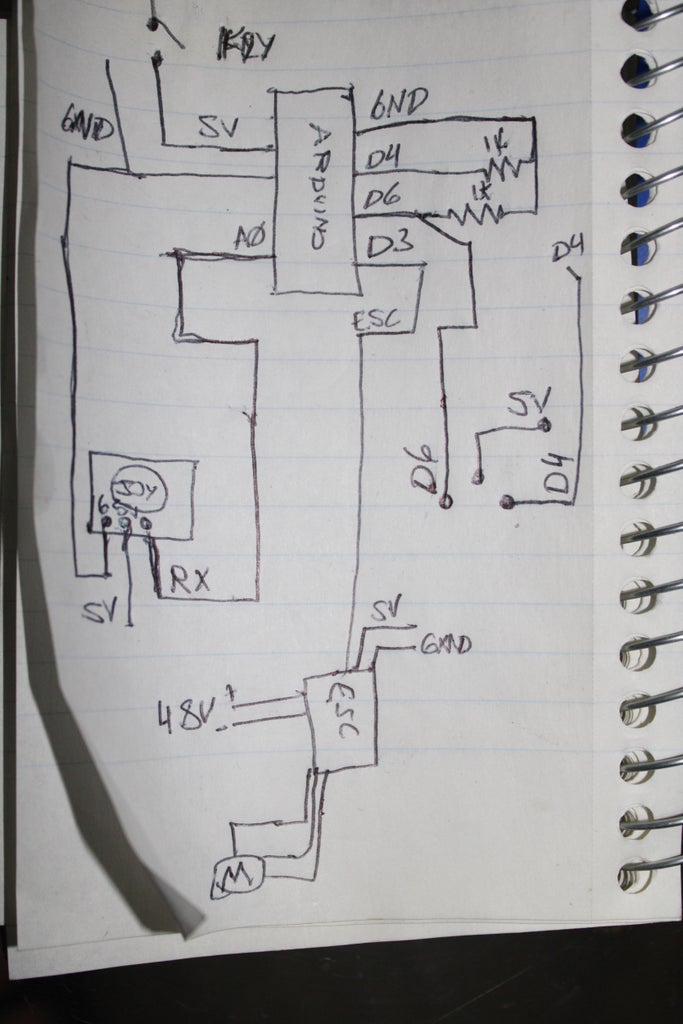 KEY
GND
5V
ARDUINO
GND
D4
1K
D6
1K
A0
D3
D4
ESC
5V
D6
D4
RX
5V
5V
GND
48V
+
-
ESC
M